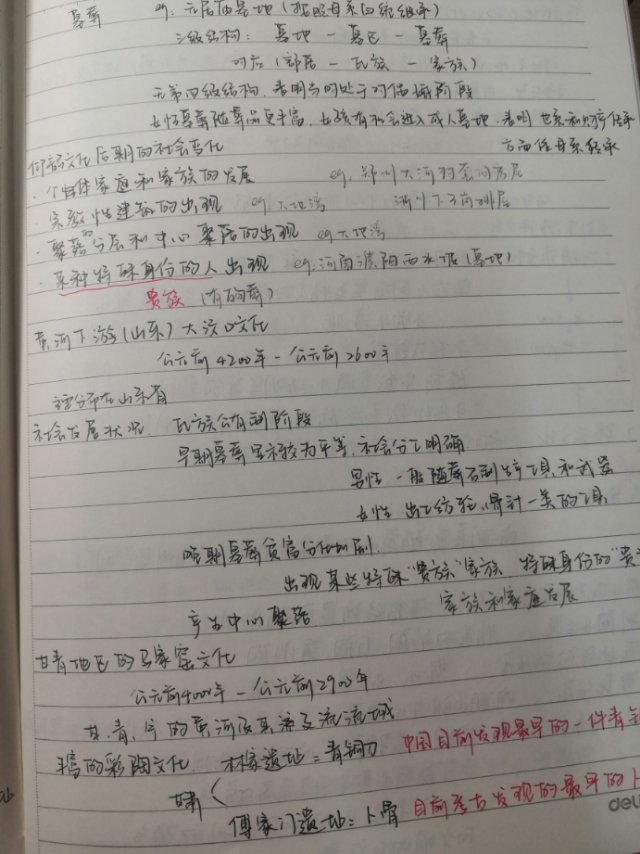 墓葬 eg. 元君庙墓地(按照母系四级组织)
三级结构: 墓地 - 墓区 - 墓葬
对应(部落 - 氏族 - 家族)
无第四级结构, 表明当时处于对偶婚阶段
女性墓葬随葬品更丰富, 女孩有机会进入成人墓地, 表明 世系和财产继承
方面任母系继承
仰韶文化后期的社会变化
· 个体家庭和家族的发展 eg. 郑州大河村套间房屋
· 宗教性建筑的出现 eg 大地湾 淅川下王岗排房
· 聚落分层和中心聚落的出现 eg 大地湾
· 某种特殊身份的人出现 eg. 河南濮阳西水坡(墓地)
贵族 (有陶葬)
黄河下游(山东)大汶口文化
公元前4200年 - 公元前2600年
主要分布在山东省
社会发展状况 氏族公有制阶段
早期墓葬显示较为平等, 社会分工明确
男性 一般随葬石制生产工具和武器
女性 出土纺轮、骨针一类的工具
晚期墓葬贫富分化加剧
出现某些特殊"贵族"家族 特殊身份的"贵
产生中心聚落 家族和家庭发展
甘青地区的马家窑文化
公元前4000年 - 公元前2900年
甘、青、宁的黄河及其源支流流域
丰富的彩陶文化 林家遗址: 青铜刀 中国目前发现最早的一件青铜
甘肃
傅家门遗址: 卜骨 目前考古发现的最早的卜
deli